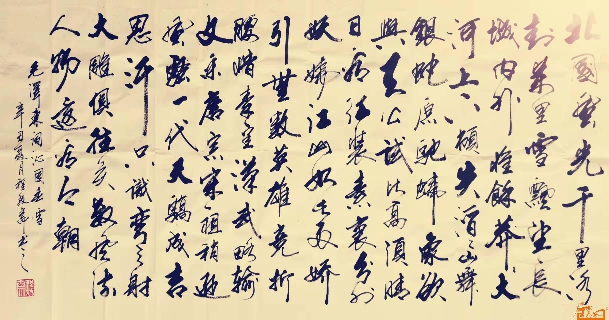 北國風光千里冰
封萬里雪飄望長
城内外惟餘莽莽大
河上下頓失滔滔山舞
銀蛇原馳蠟象欲
與天公試比高須晴
日看紅裝素裹分外
妖嬈江山如此多嬌
引無數英雄競折
腰惜秦皇漢武略輸
文采唐宗宋祖稍遜
風騷一代天驕成吉
思汗只識彎弓射
大雕俱往矣數風流
人物還看今朝
毛澤東詞沁園春雪
辛丑夏月程